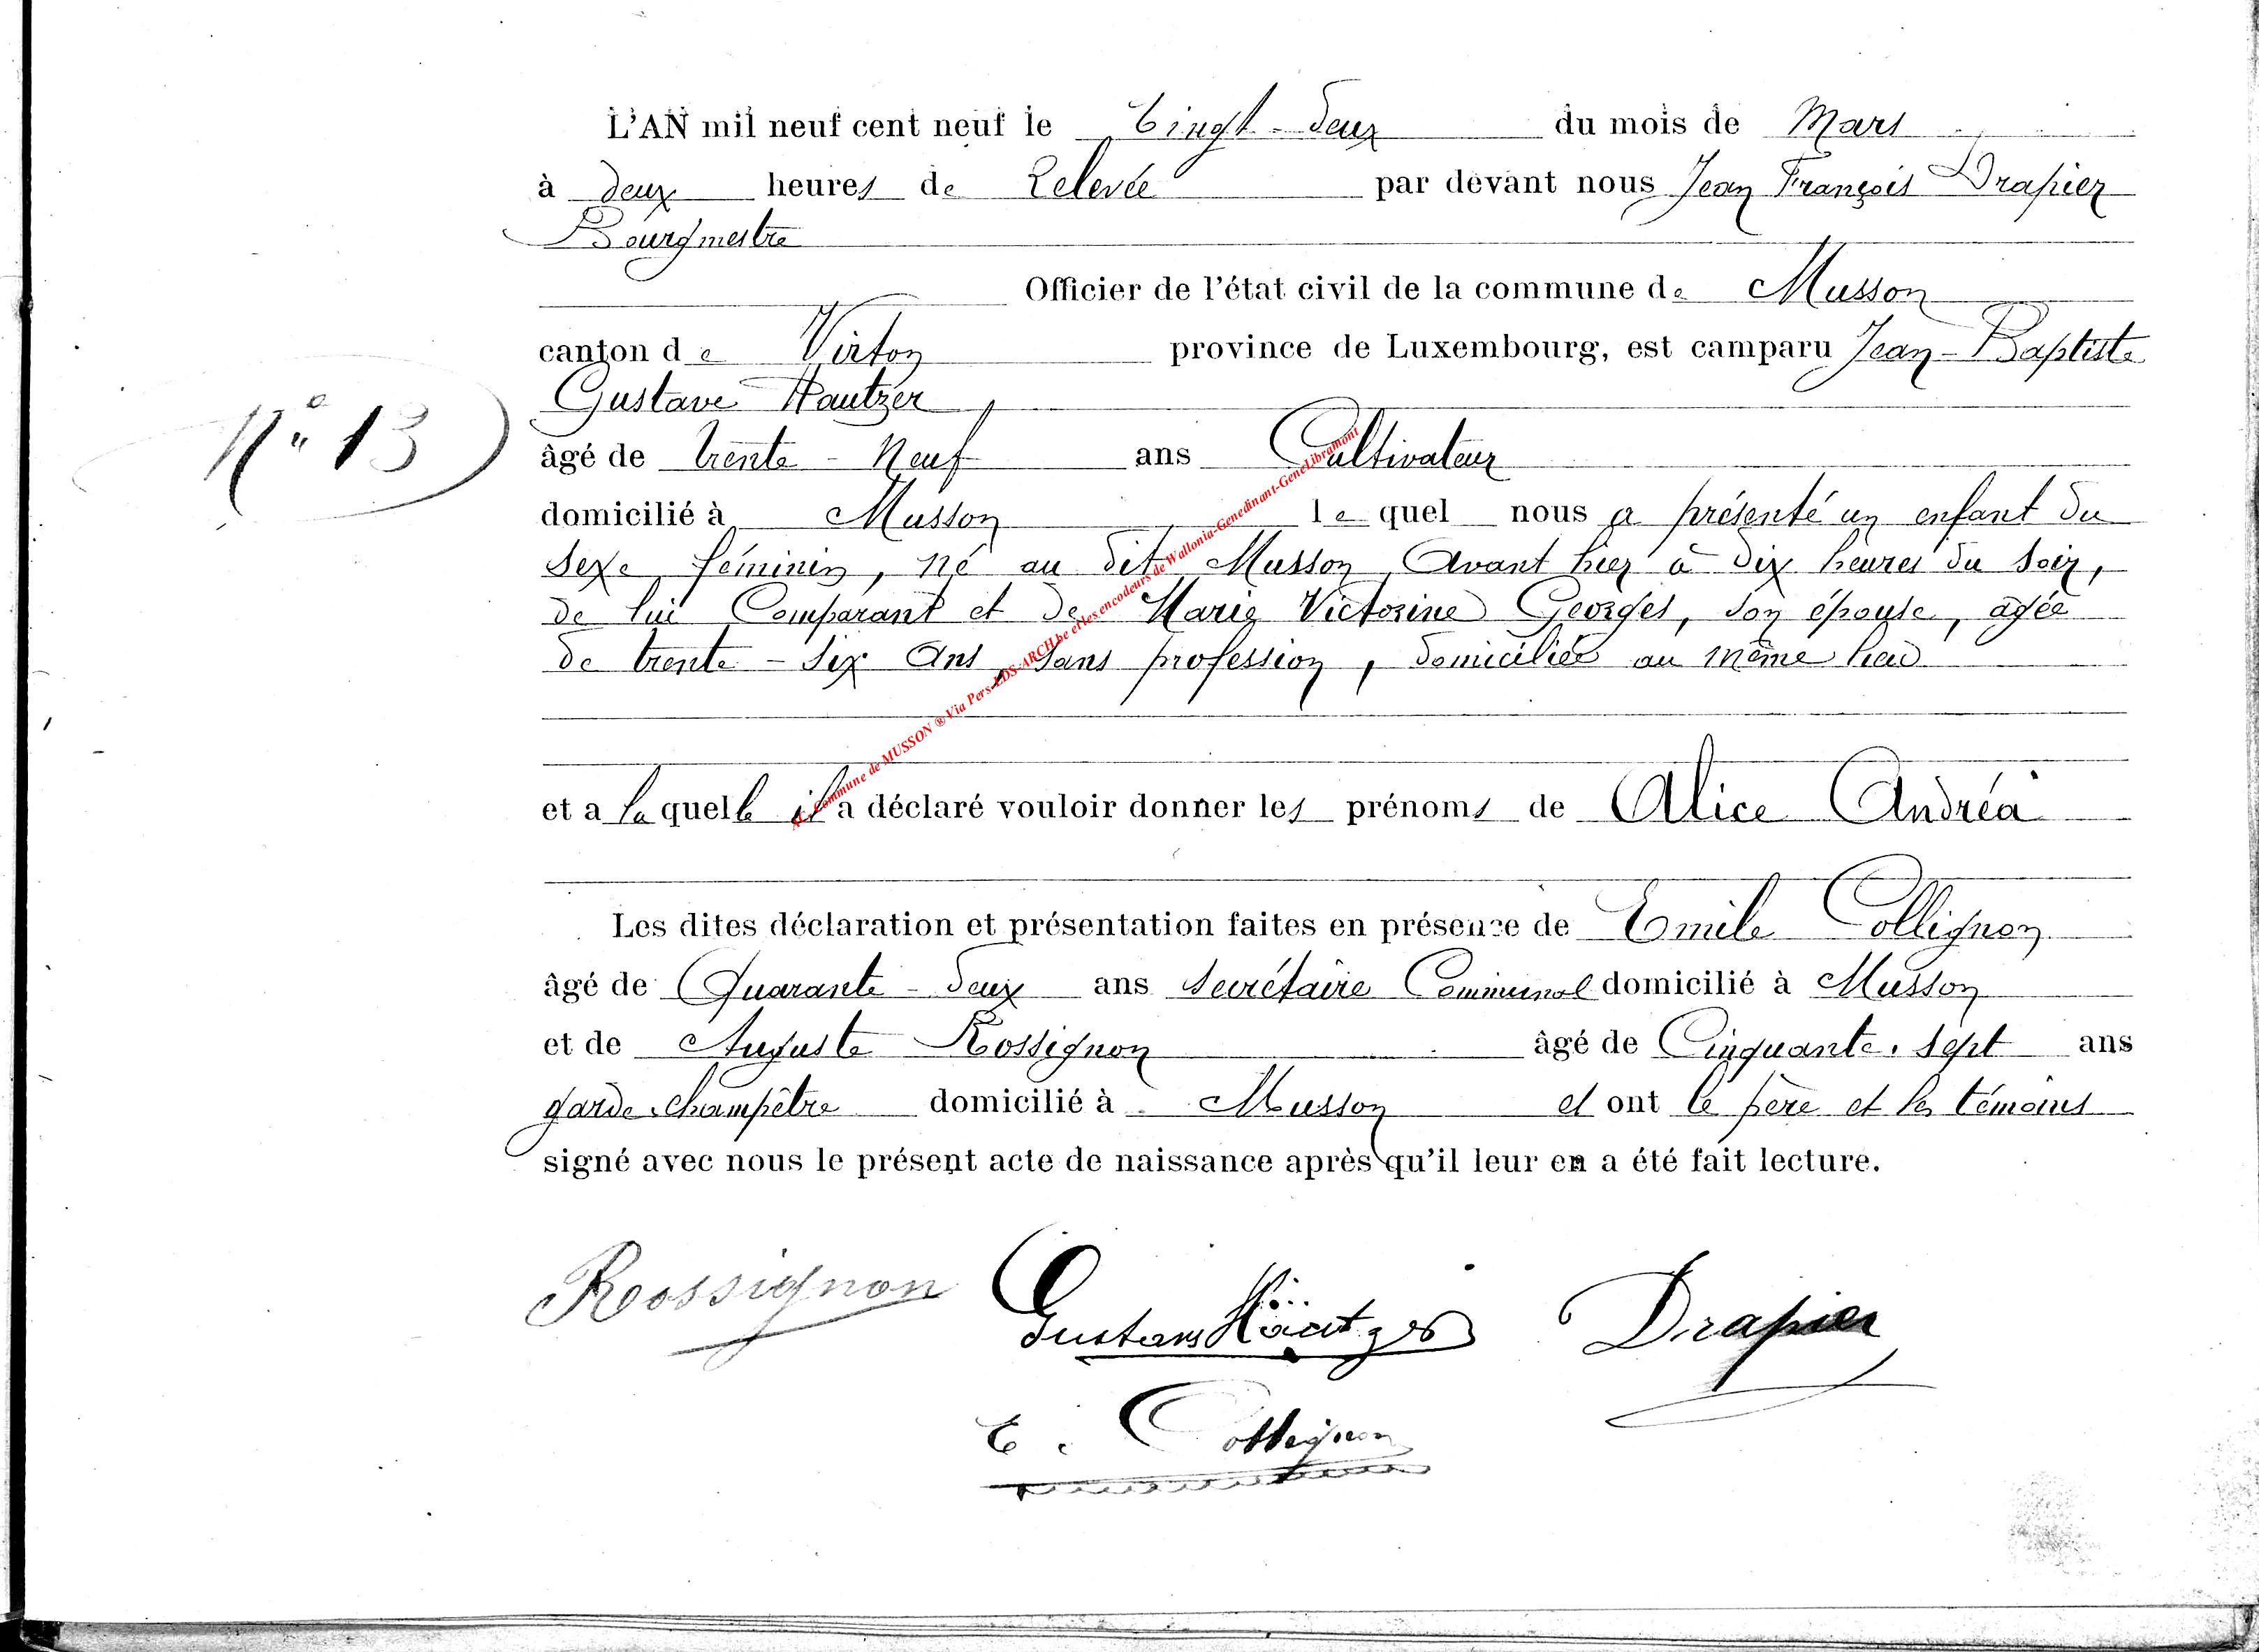 L'AN mil neuf cent neuf le Vingt-deux du mois de Mars
à deux heures de Relevée par devant nous Jean François Drapier
Bourgmestre
Officier de l'état civil de la commune de Musson
canton de Virton province de Luxembourg, est camparu Jean-Baptiste
Gustave Hautzer
N° 13
âgé de trente-Neuf ans Cultivateur
domicilié à Musson le quel nous a présenté un enfant du
sexe féminin, né au dit Musson Avant hier à dix heures du soir,
de lui Comparant et de Marie Victorine Georges, son épouse, agée
de trente-six ans, sans profession, domiciliée au même lieu
et a la quelle il a déclaré vouloir donner les prénoms de Alice Andréa
Les dites déclaration et présentation faites en présence de Emile Collignon
âgé de Quarante-deux ans secrétaire Communal domicilié à Musson
et de Auguste Rossignon âgé de Cinquante-sept ans
garde-champêtre domicilié à Musson et ont le père et les témoins
signé avec nous le présent acte de naissance après qu'il leur en a été fait lecture.
Rossignon Gustave Hautzer Drapier
E. Collignon
Commune de MUSSON ® Via Pers-LDS-ARCH.be et les encodeurs de Wallonia-Genedinant-GeneLibramont